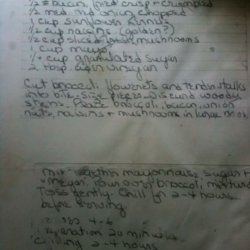 1/2 # bacon, fried crisp + crumbled
2 med. red onion chopped
1 cup sunflower kernels
1/2 cup raisins (golden?)
1/2 cup sliced mushrooms
1 cup mayo
1/4 cup granulated sugar
2 tbsp cider vinegar
Cut broccoli flowerets and tender stalks
into bite size pieces discard woody
stems. Place broccoli, bacon, onion
nuts, raisins + mushrooms in large bowl.
Mix mayonnaise sugar +
vinegar. Pour over broccoli mixture
Toss gently. Chill for 2-4 hours
before serving
4-6
20 min
Chilling 2-4 hours